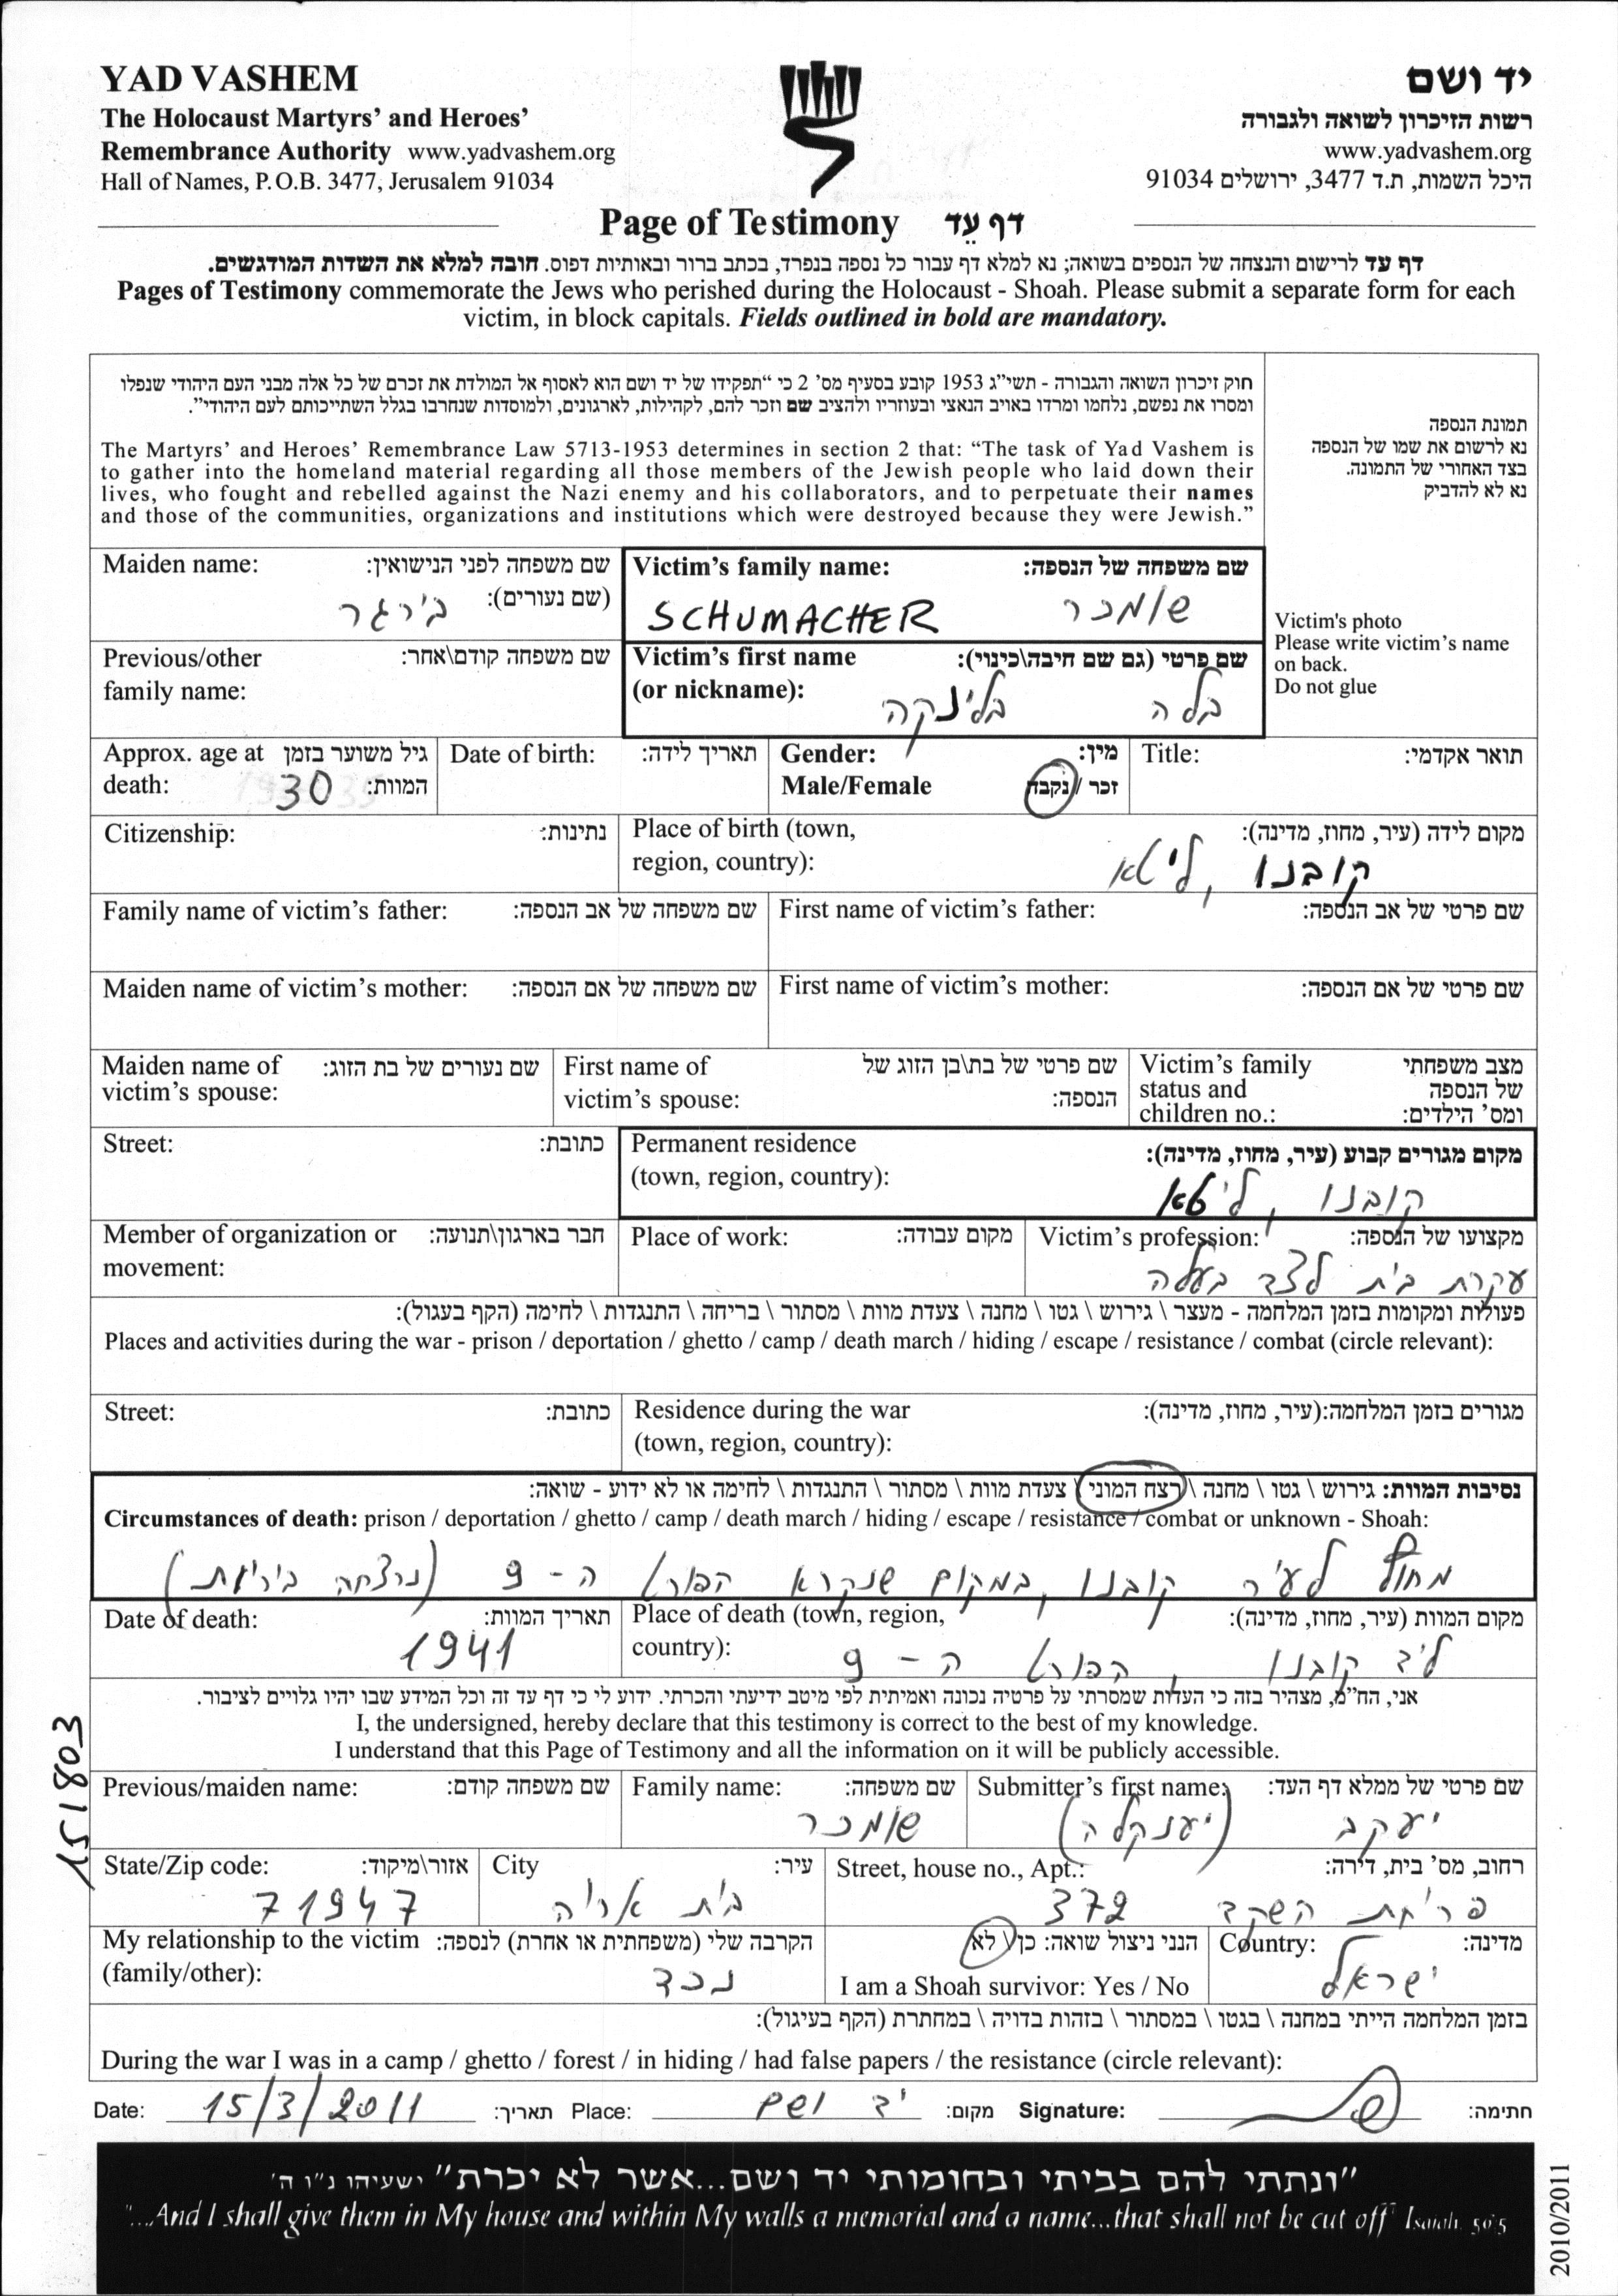 YAD VASHEM
The Holocaust Martyrs' and Heroes'
Remembrance Authority www.yadvashem.org
Hall of Names, P.O.B. 3477, Jerusalem 91034
יד ושם
רשות הזיכרון לשואה ולגבורה
www.yadvashem.org
היכל השמות, ת.ד 3477, ירושלים 91034
Page of Testimony דף עֵד
דף עד לרישום והנצחה של הנספים בשואה; נא למלא דף עבור כל נספה בנפרד, בכתב ברור ובאותיות דפוס. חובה למלא את השדות המודגשים.
Pages of Testimony commemorate the Jews who perished during the Holocaust - Shoah. Please submit a separate form for each
victim, in block capitals. Fields outlined in bold are mandatory.
חוק זיכרון השואה והגבורה - תשי"ג 1953 קובע בסעיף מס' 2 כי "תפקידו של יד ושם הוא לאסוף אל המולדת את זכרם של כל אלה מבני העם היהודי שנפלו
ומסרו את נפשם, נלחמו ומרדו באויב הנאצי ובעוזריו ולהציב שם וזכר להם, לקהילות, לארגונים, ולמוסדות שנחרבו בגלל השתייכותם לעם היהודי".
The Martyrs' and Heroes' Remembrance Law 5713-1953 determines in section 2 that: "The task of Yad Vashem is
to gather into the homeland material regarding all those members of the Jewish people who laid down their
lives, who fought and rebelled against the Nazi enemy and his collaborators, and to perpetuate their names
and those of the communities, organizations and institutions which were destroyed because they were Jewish."
תמונת הנספה
נא לרשום את שמו של הנספה
בצד האחורי של התמונה.
נא לא להדביק
Victim's photo
Please write victim's name
on back.
Do not glue
Maiden name: שם משפחה לפני הנישואין:
(שם נעורים): בירגר
Victim's family name: שם משפחה של הנספה:
SCHUMACHER שומכר
Previous/other שם משפחה קודם\אחר:
family name:
Victim's first name שם פרטי (גם שם חיבה\כינוי):
(or nickname): בלה בלינקה
Approx. age at גיל משוער בזמן
death: המוות: 30
Date of birth: תאריך לידה:
Gender: מין:
Male/Female זכר / נקבה
Title: תואר אקדמי:
Citizenship: נתינות:
Place of birth (town, מקום לידה (עיר, מחוז, מדינה):
region, country): קובנו, ליטא
Family name of victim's father: שם משפחה של אב הנספה:
First name of victim's father: שם פרטי של אב הנספה:
Maiden name of victim's mother: שם משפחה של אם הנספה:
First name of victim's mother: שם פרטי של אם הנספה:
Maiden name of שם נעורים של בת הזוג:
victim's spouse:
First name of שם פרטי של בת\בן הזוג של
victim's spouse: הנספה:
Victim's family מצב משפחתי
status and של הנספה
children no.: ומס' הילדים:
Street: כתובת:
Permanent residence מקום מגורים קבוע (עיר, מחוז, מדינה):
(town, region, country): קובנו, ליטא
Member of organization or חבר בארגון\תנועה:
movement:
Place of work: מקום עבודה:
Victim's profession: מקצועו של הנספה:
עקרת בית לצד בעלה
פעולות ומקומות בזמן המלחמה - מעצר \ גירוש \ גטו \ מחנה \ צעדת מוות \ מסתור \ בריחה \ התנגדות \ לחימה (הקף בעגול):
Places and activities during the war - prison / deportation / ghetto / camp / death march / hiding / escape / resistance / combat (circle relevant):
Street: כתובת:
Residence during the war מגורים בזמן המלחמה:(עיר, מחוז, מדינה):
(town, region, country):
נסיבות המוות: גירוש \ גטו \ מחנה \ רצח המוני \ צעדת מוות \ מסתור \ התנגדות \ לחימה או לא ידוע - שואה:
Circumstances of death: prison / deportation / ghetto / camp / death march / hiding / escape / resistance / combat or unknown - Shoah:
מחוץ לעיר קובנו, במקום שנקרא הפורט ה-9 (נרצחה ביריות)
Date of death: תאריך המוות:
1941
Place of death (town, region, מקום המוות (עיר, מחוז, מדינה):
country): ליד קובנו, הפורט ה-9
אני, הח"מ, מצהיר בזה כי העדות שמסרתי על פרטיה נכונה ואמיתית לפי מיטב ידיעתי והכרתי. ידוע לי כי דף עד זה וכל המידע שבו יהיו גלויים לציבור.
I, the undersigned, hereby declare that this testimony is correct to the best of my knowledge.
I understand that this Page of Testimony and all the information on it will be publicly accessible.
151803
Previous/maiden name: שם משפחה קודם:
Family name: שם משפחה:
שומכר
Submitter's first name: שם פרטי של ממלא דף העד:
יעקב (יענקלה)
State/Zip code: אזור\מיקוד:
71947
City עיר:
בית אריה
Street, house no., Apt.: רחוב, מס' בית, דירה:
פריחת השקד 372
My relationship to the victim הקרבה שלי (משפחתית או אחרת) לנספה:
(family/other): נכד
הנני ניצול שואה: כן \ לא
I am a Shoah survivor: Yes / No
Country: מדינה:
ישראל
בזמן המלחמה הייתי במחנה \ בגטו \ במסתור \ בזהות בדויה \ במחתרת (הקף בעיגול):
During the war I was in a camp / ghetto / forest / in hiding / had false papers / the resistance (circle relevant):
Date: 15/3/2011 תאריך: Place: יד ושם מקום: Signature: חתימה:
"ונתתי להם בביתי ובחומותי יד ושם...אשר לא יכרת" ישעיהו נ"ו ה'
"...And I shall give them in My house and within My walls a memorial and a name...that shall not be cut off" Isaiah, 56:5
2010/2011